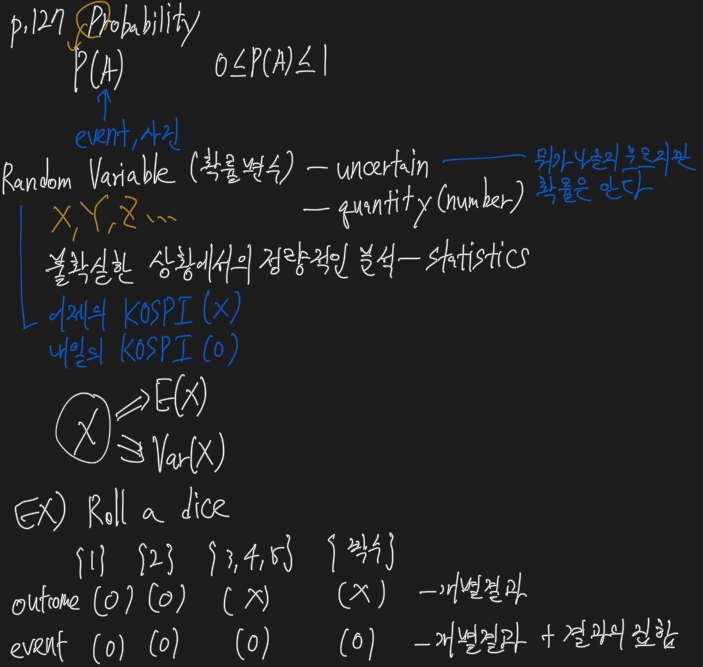 p.127 Probability
P(A) 0≤P(A)≤1
event, 사건
Random Variable (확률변수) — uncertain — 뭐가 나올지 모르지만
확률은 안다
X, Y, Z ... — quantity (number)
불확실한 상황에서의 정량적인 분석 — statistics
어제의 KOSPI (X)
내일의 KOSPI (O)
X ⇒ E(X)
⇒ Var(X)
EX) Roll a dice
{1} {2} {3,4,5} {짝수}
outcome (O) (O) (X) (X) — 개별결과
event (O) (O) (O) (O) — 개별결과 + 결과의 집합